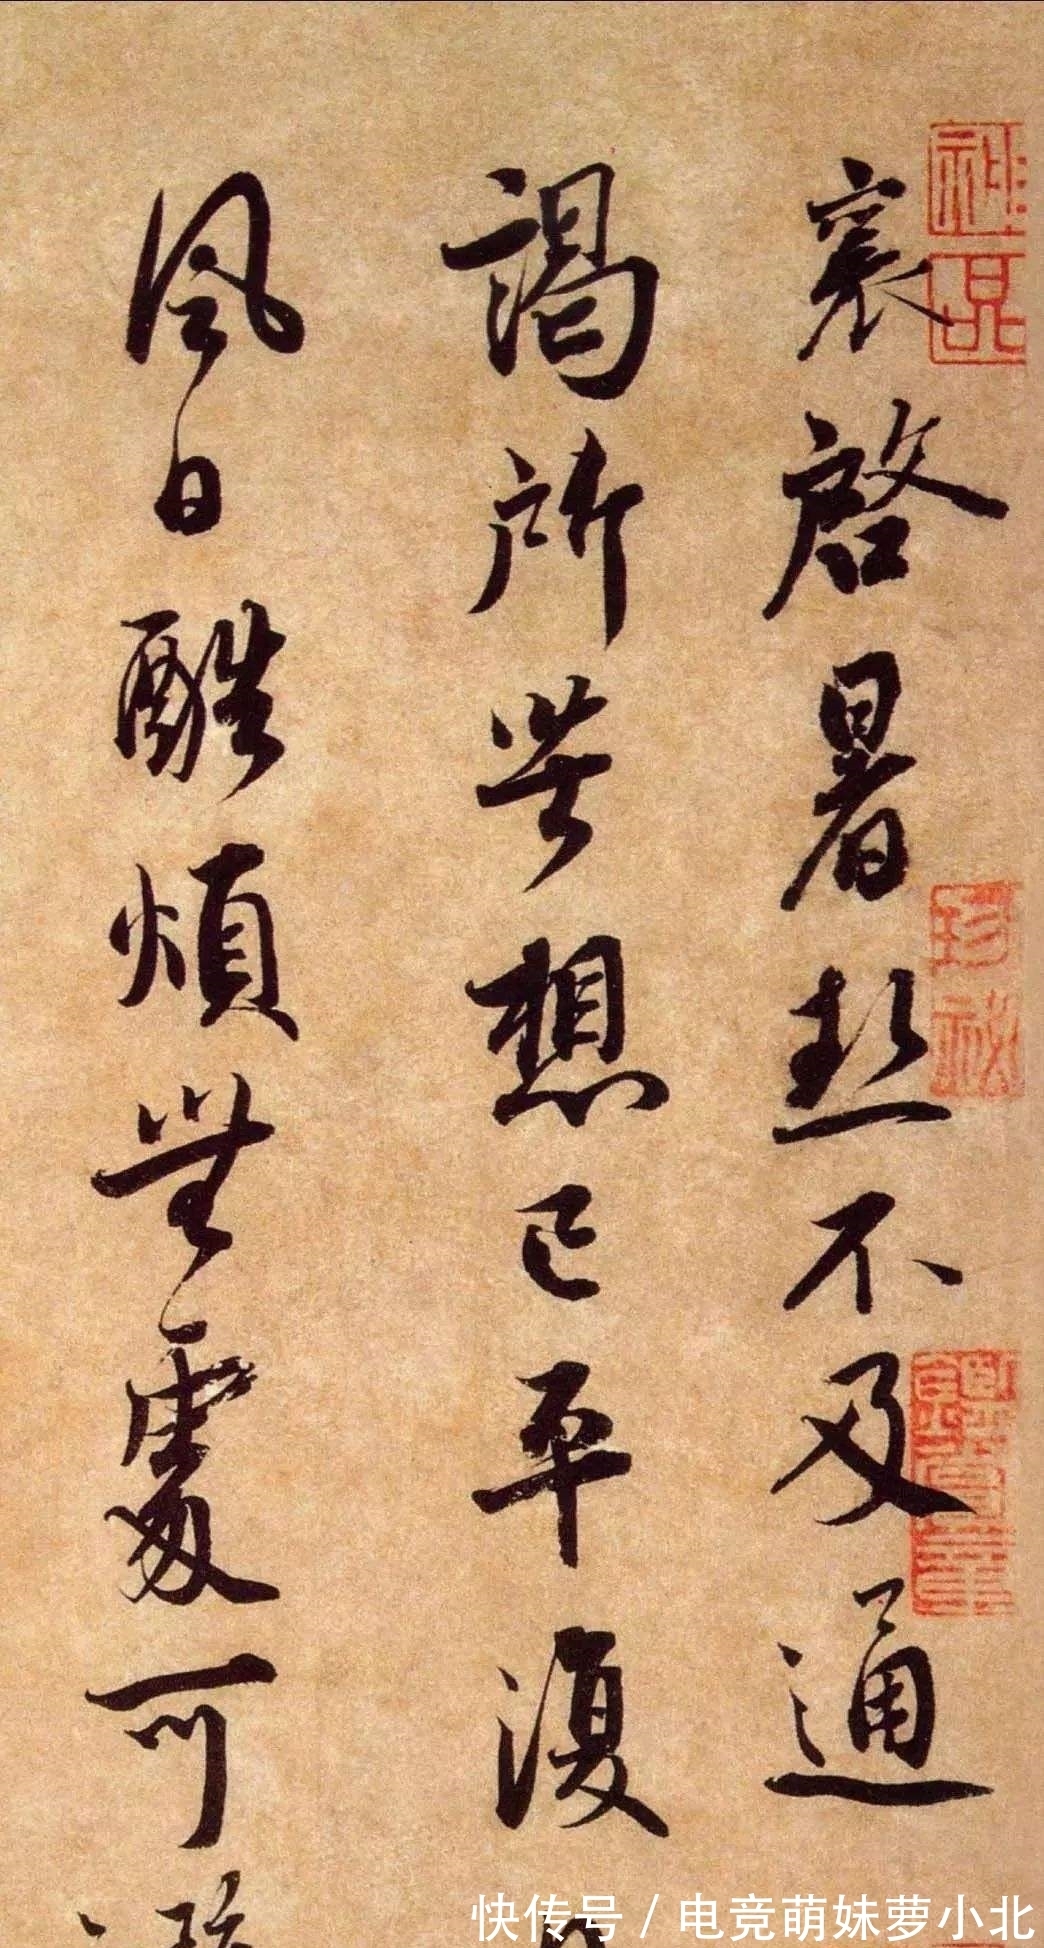 襄啓暑熱不及通
謁所苦想已平復
風日酷煩無處可
快传号/电竞萌妹萝小北